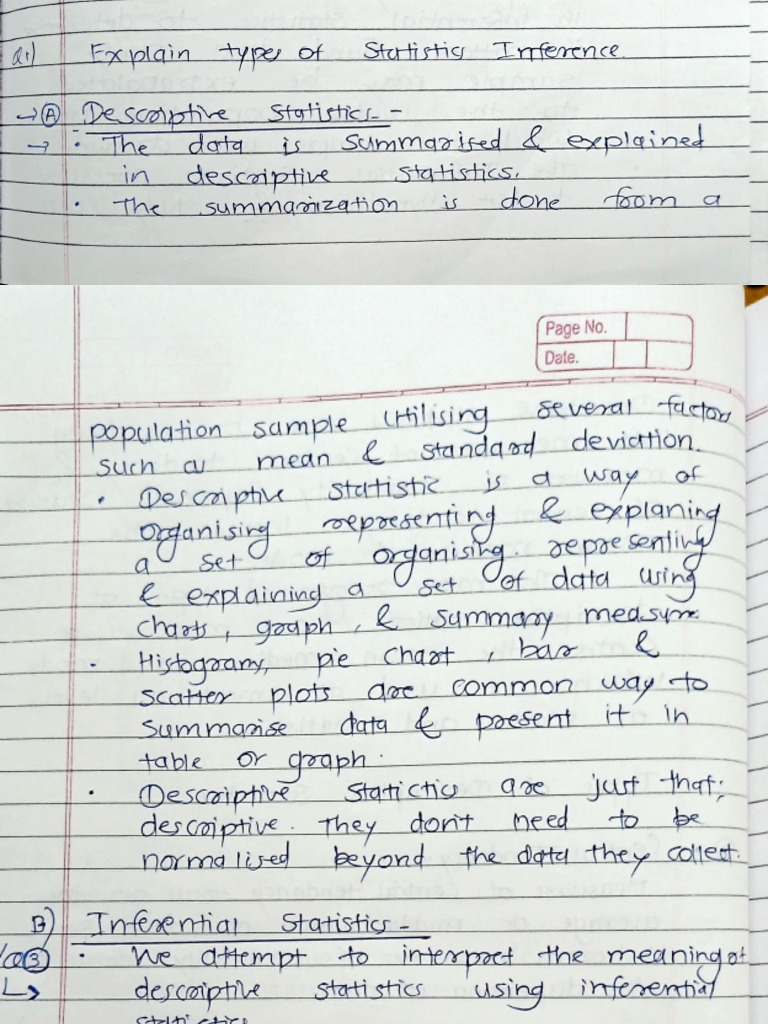 Q1) Explain types of Statistics Inference.
→ Ⓐ Descriptive Statistics -
→ • The data is summarised & explained
in descriptive statistics.
• The summarization is done from a
Page No.
Date.
population sample utilising several factors
such as mean & standard deviation.
• Descriptive statistic is a way of
organising representing & explaning
a set of organising. representing
& explaining a set of data using
charts, graph, & summary measure
• Histograms, pie chart, bar &
scatter plots are common way to
summarise data & present it in
table or graph.
• Descriptive Statictics are just that;
descriptive. They don't need to be
normalised beyond the data they collect.
B) Inferential Statistics -
Q③ • We attempt to interpret the meaning of
↳ descriptive statistics using inferential
statistics